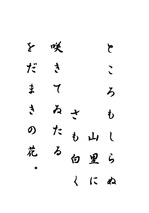 ところもしらぬ
山里に
さも白く
咲きてゐたる
をだまきの花。